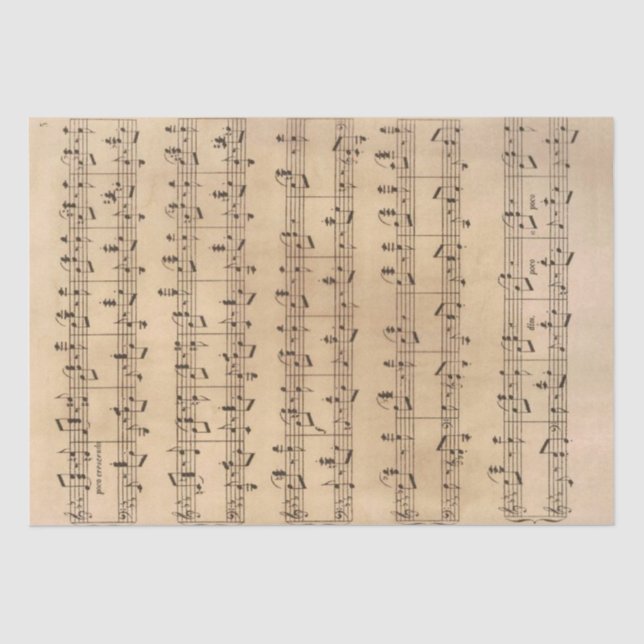 5
poco crescendo
dim. poco e poco